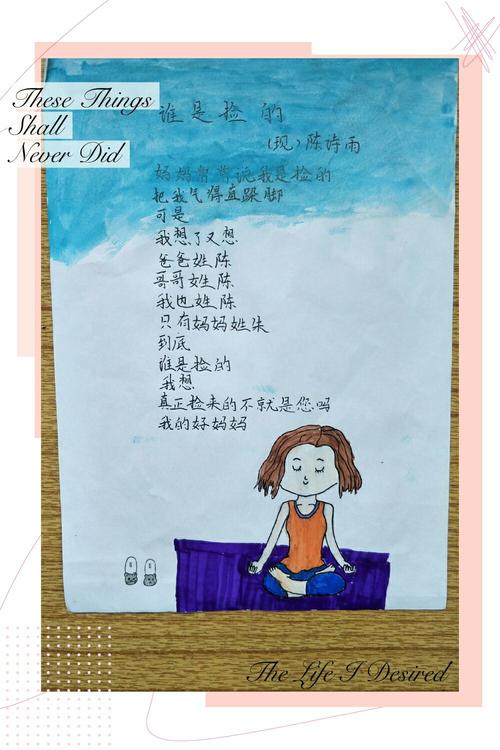 These Things
Shall
Never Did
谁是捡的
（现）陈诗雨
妈妈常常说我是捡的
把我气得直跺脚
可是
我想了又想
爸爸姓陈
哥哥姓陈
我也姓陈
只有妈妈姓朱
到底
谁是捡的
我想
真正捡来的不就是您吗
我的好妈妈
The Life I Desired